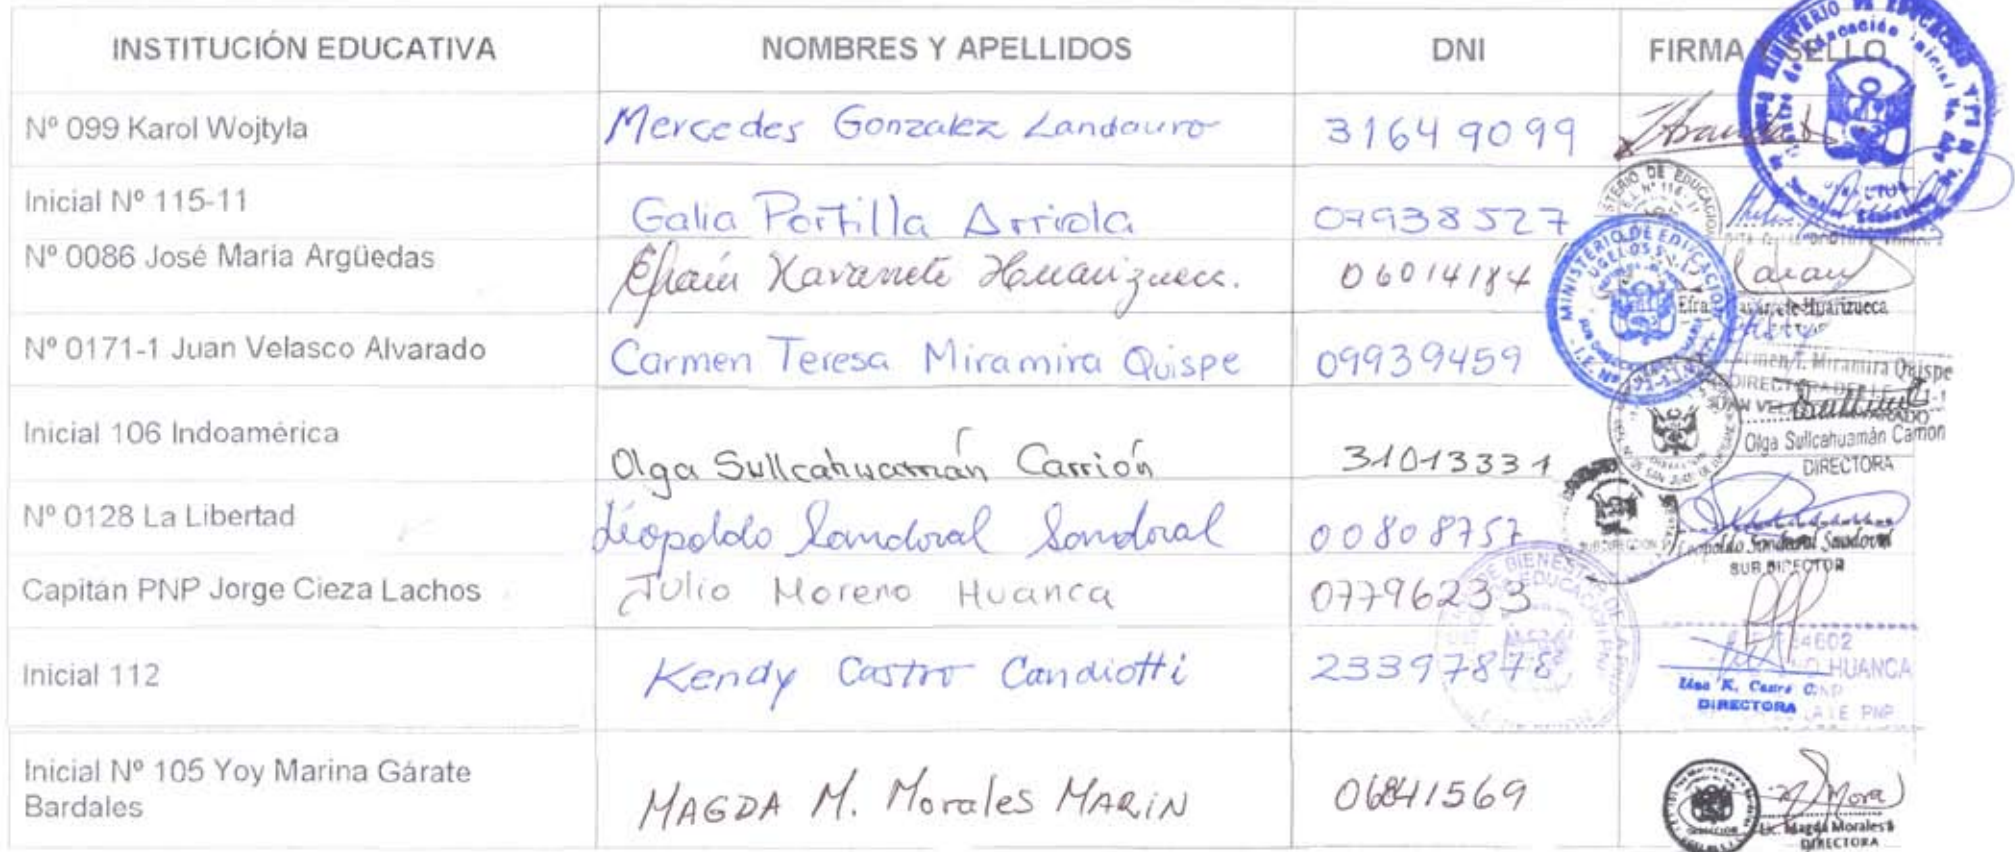 INSTITUCIÓN EDUCATIVA NOMBRES Y APELLIDOS DNI FIRMA Y SELLO
Nº 099 Karol Wojtyla Mercedes Gonzalez Landauro 31649099
Inicial Nº 115-11 Galia Portilla Arriola 09938527
Nº 0086 José María Argüedas Efraín Navarrete Huarizueca. 06014184
Efra Navarrete Huarizueca
Nº 0171-1 Juan Velasco Alvarado Carmen Teresa Miramira Quispe 09939459
MINISTERIO DE EDUCACION
Carmen T. Miramira Quispe
DIRECTORA DE LA I.E.
Inicial 106 Indoamérica Olga Sullcahuamán Carrión 31013331
Olga Sullcahuamán Carrion
DIRECTORA
Nº 0128 La Libertad Leopoldo Sandoval Sandoval 00808757
Leopoldo Sandoval Sandoval
SUB DIRECTOR
Capitán PNP Jorge Cieza Lachos Julio Moreno Huanca 07796233
HUANCA
Inicial 112 Kendy Castro Candiotti 23397878
Lina K. Castro C.
DIRECTORA
Inicial Nº 105 Yoy Marina Gárate
Bardales MAGDA M. Morales MARiN 06841569
Lic. Magda Morales
DIRECTORA